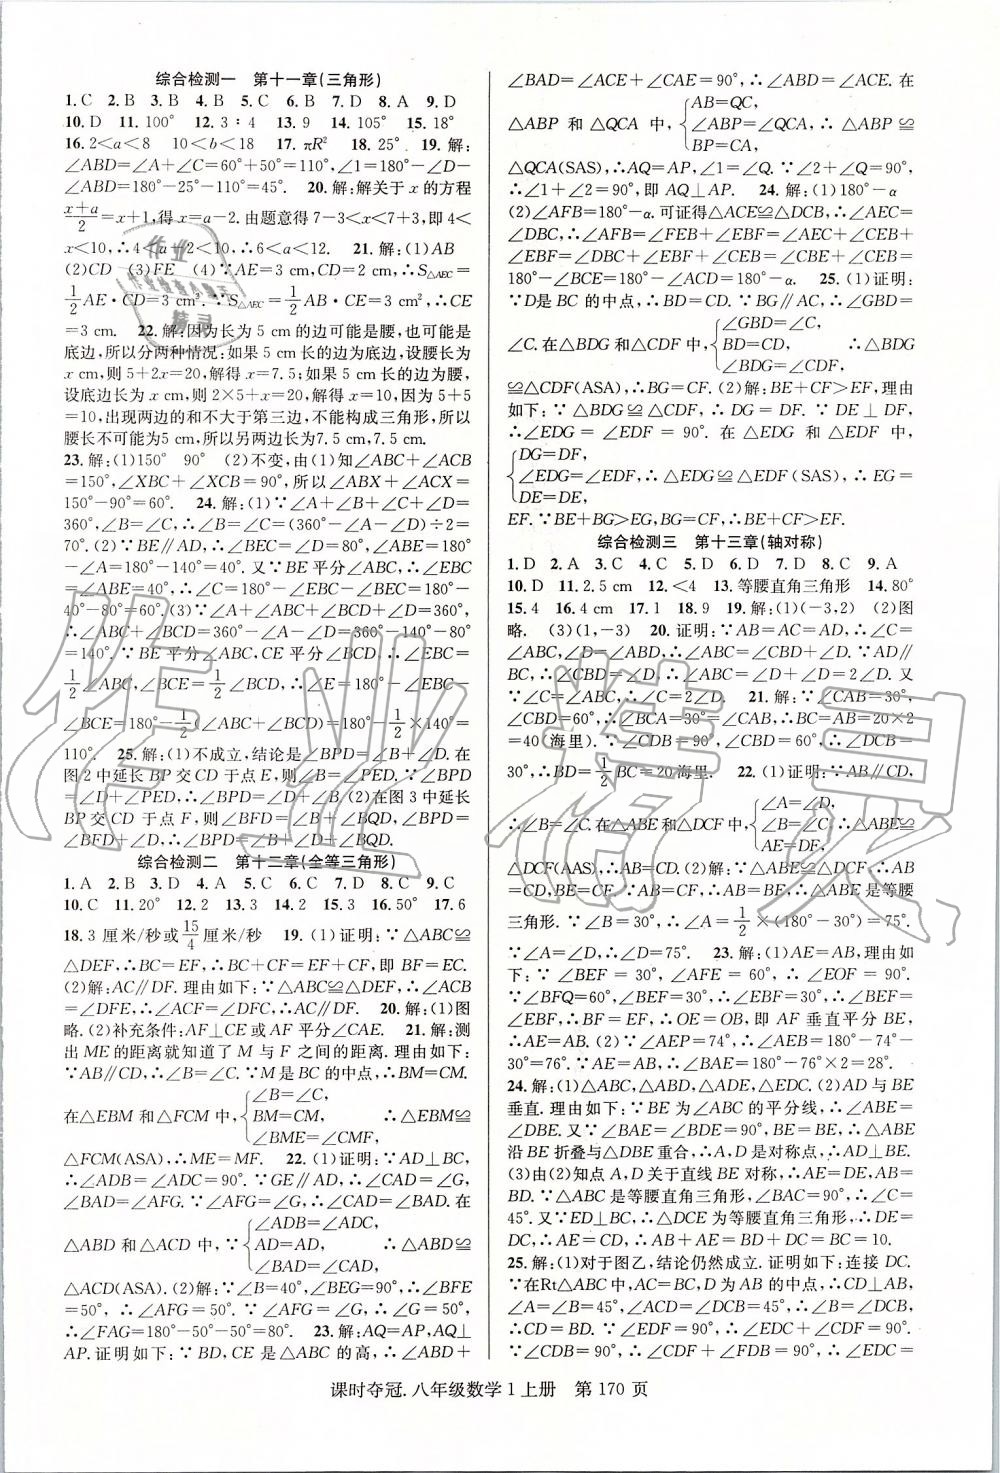 综合检测一 第十一章(三角形)
1. C 2. B 3. B 4. B 5. C 6. B 7. D 8. A 9. D
10. D 11. 100° 12. 3∶4 13. 9 14. 105° 15. 18°
16. 2<a<8 10<b<18 17. πR² 18. 25° 19. 解:
∠ABD=∠A+∠C=60°+50°=110°,∠1=180°-∠D-
∠ABD=180°-25°-110°=45°. 20. 解:解关于 x 的方程
(x+a)/2=x+1,得 x=a-2. 由题意得 7-3<x<7+3,即 4<
x<10,∴4<a-2<10,∴6<a<12. 21. 解:(1)AB
(2)CD (3)FE (4)∵AE=3 cm,CD=2 cm,∴S△AEC=
1/2 AE·CD=3 cm². ∵S△AEC=1/2 AB·CE=3 cm²,∴CE
=3 cm. 22. 解:因为长为 5 cm 的边可能是腰,也可能是
底边,所以分两种情况:如果 5 cm 长的边为底边,设腰长为
x cm,则 5+2x=20,解得 x=7.5;如果 5 cm 长的边为腰,
设底边长为 x cm,则 2×5+x=20,解得 x=10,因为 5+5
=10,出现两边的和不大于第三边,不能构成三角形,所以
腰长不可能为5 cm,所以另两边长为7.5 cm,7.5 cm.
23. 解:(1)150° 90° (2)不变,由(1)知∠ABC+∠ACB
=150°,∠XBC+∠XCB=90°,所以∠ABX+∠ACX=
150°-90°=60°. 24. 解:(1)∵∠A+∠B+∠C+∠D=
360°,∠B=∠C,∴∠B=∠C=(360°-∠A-∠D)÷2=
70°. (2)∵BE∥AD,∴∠BEC=∠D=80°,∠ABE=
180°-∠A=180°-120°=60°. 又∵BE平分∠ABC,∴∠EBC
=∠ABE=60°,∴∠C=180°-∠EBC-∠BEC=180°-
60°-80°=40°. (3)∵∠A+∠ABC+∠BCD+∠D=360°,
∴∠ABC+∠BCD=360°-∠A-∠D=360°-140°-80°
=140°. ∵BE 平分∠ABC,CE 平分∠BCD,∴∠EBC=
1/2∠ABC,∠BCE=1/2∠BCD,∴∠E=180°-∠EBC-
∠BCE=180°-1/2(∠ABC+∠BCD)=180°-1/2×140°=
110°. 25. 解:(1)不成立,结论是∠BPD=∠B+∠D. 在
图 2 中延长 BP 交 CD 于点 E,则∠BPD=∠PED+∠D,
∠B=∠PED,∴∠BPD=∠B+∠D. (2)在图 3 中延长
BP 交 CD 于点 F,则∠BFD=∠B+∠BQD,∠BPD=
∠BFD+∠D,∴∠BPD=∠B+∠BQD+∠D.
综合检测二 第十二章(全等三角形)
1. A 2. B 3. D 4. A 5. C 6. C 7. D 8. C 9. C
10. C 11. 20° 12. 2 13. 3 14. 2 15. 3 16. 50° 17. 6
18. 3 厘米/秒或15/4厘米/秒 19. (1)证明:∵△ABC≌
△DEF,∴BC=EF,∴BC+CF=EF+CF,即 BF=EC.
(2)解:AC∥DF. 理由如下:∵△ABC≌△DEF,∴∠ACB
=∠DFE,∴∠ACF=∠DFC,∴AC∥DF. 20. 解:(1)图
略. (2)补充条件:AF⊥CE 或 AF 平分∠CAE. 21. 解:测
出 ME 的距离就知道了 M 与 F 之间的距离. 理由如下:
∵AB∥CD,∴∠B=∠C. ∵M 是 BC 的中点,∴BM=CM.
在△EBM 和△FCM 中,{∠B=∠C, BM=CM, ∠BME=∠CMF, ∴△EBM≌
△FCM(ASA),∴ME=MF. 22. (1)证明:∵AD⊥BC,
∴∠ADB=∠ADC=90°. ∵GE∥AD,∴∠CAD=∠G,
∠BAD=∠AFG. ∵∠AFG=∠G,∴∠CAD=∠BAD. 在
△ABD 和△ACD 中,∵{∠ADB=∠ADC, AD=AD, ∠BAD=∠CAD, ∴△ABD≌
△ACD(ASA). (2)解:∵∠B=40°,∠BEG=90°,∴∠BFE
=50°, ∴∠AFG=50°. ∵∠AFG=∠G,∴∠G=50°,
∴∠FAG=180°-50°-50°=80°. 23. 解:AQ=AP,AQ⊥
AP. 证明如下:∵BD,CE 是△ABC 的高,∴∠ABD+
∠BAD=∠ACE+∠CAE=90°,∴∠ABD=∠ACE. 在
△ABP 和△QCA 中,{AB=QC, ∠ABP=∠QCA, BP=CA, ∴△ABP≌
△QCA(SAS),∴AQ=AP,∠1=∠Q. ∵∠2+∠Q=90°,
∴∠1+∠2=90°,即 AQ⊥AP. 24. 解:(1)180°-α
(2)∠AFB=180°-α. 可证得△ACE≌△DCB,∴∠AEC=
∠DBC,∴∠AFB=∠FEB+∠EBF=∠AEC+∠CEB+
∠EBF=∠DBC+∠EBF+∠CEB=∠CBE+∠CEB=
180°-∠BCE=180°-∠ACD=180°-α. 25. (1)证明:
∵D是 BC 的中点,∴BD=CD. ∵BG∥AC,∴∠GBD=
∠C. 在△BDG 和△CDF 中,{∠GBD=∠C, BD=CD, ∠BDG=∠CDF, ∴△BDG
≌△CDF(ASA),∴BG=CF. (2)解:BE+CF>EF,理由
如下:∵△BDG≌△CDF,∴DG=DF. ∵DE⊥DF,
∴∠EDG=∠EDF=90°. 在△EDG 和△EDF 中,
{DG=DF, ∠EDG=∠EDF, DE=DE, ∴△EDG≌△EDF(SAS),∴EG=
EF. ∵BE+BG>EG,BG=CF,∴BE+CF>EF.
综合检测三 第十三章(轴对称)
1. B 2. A 3. C 4. C 5. D 6. D 7. D 8. C 9. A
10. D 11. 2.5 cm 12. <4 13. 等腰直角三角形 14. 80°
15. 4 16. 4 cm 17. 1 18. 9 19. 解:(1)(-3,2) (2)图
略. (3)(1,-3) 20. 证明:∵AB=AC=AD,∴∠C=
∠ABC,∠D=∠ABD,∴∠ABC=∠CBD+∠D. ∵AD∥
BC,∴∠CBD=∠D,∴∠ABC=∠D+∠D=2∠D. 又
∵∠C=∠ABC,∴∠C=2∠D. 21. 解:∵∠CAB=30°,
∠CBD=60°,∴∠BCA=30°=∠CAB,∴BC=AB=20×2
=40(海里). ∵∠CDB=90°,∠CBD=60°,∴∠DCB=
30°,∴BD=1/2BC=20海里. 22. (1)证明:∵AB∥CD,
∴∠B=∠C. 在△ABE和△DCF中,{∠A=∠D, ∠B=∠C, AE=DF, ∴△ABE≌
△DCF(AAS),∴AB=CD. (2)解:∵△ABE≌△DCF,∴AB
=CD,BE=CF. ∵AB=CF,∴AB=BE,∴△ABE 是等腰
三角形. ∵∠B=30°,∴∠A=1/2×(180°-30°)=75°.
∵∠A=∠D,∴∠D=75°. 23. 解:(1)AE=AB,理由如
下:∵∠BEF=30°,∠AFE=60°,∴∠EOF=90°.
∵∠BFQ=60°,∠BEF=30°,∴∠EBF=30°,∴∠BEF=
∠EBF,∴BF=EF,∴OE=OB,即 AF 垂直平分 BE,
∴AE=AB. (2)∵∠AEP=74°,∴∠AEB=180°-74°-
30°=76°. ∵AE=AB,∴∠BAE=180°-76°×2=28°.
24. 解:(1)△ABC,△ABD,△ADE,△EDC. (2)AD 与 BE
垂直. 理由如下:∵BE 为∠ABC 的平分线,∴∠ABE=
∠DBE. 又∵∠BAE=∠BDE=90°,BE=BE,∴△ABE
沿 BE 折叠与△DBE 重合,∴A,D 是对称点,∴AD⊥BE.
(3)由(2)知点 A,D 关于直线 BE 对称,∴AE=DE,AB=
BD. ∵△ABC 是等腰直角三角形,∠BAC=90°,∴∠C=
45°. 又∵ED⊥BC,∴△DCE为等腰直角三角形,∴DE=
DC,∴AE=CD,∴AB+AE=BD+DC=BC=10.
25. 解:(1)对于图乙,结论仍然成立. 证明如下:连接 DC.
∵在Rt△ABC中,AC=BC,D 为 AB 的中点,∴CD⊥AB,
∠A=∠B=45°,∠ACD=∠DCB=45°,∴∠B=∠DCB,
∴CD=BD. ∵∠EDF=90°,∴∠EDC+∠CDF=90°.
∵∠CDB=90°,∴∠CDF+∠FDB=90°,∴∠EDC=
课时夺冠. 八年级数学 1 上册 第 170 页